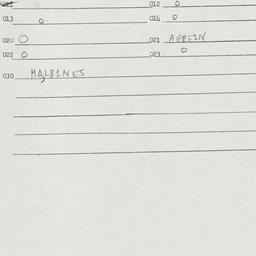 012 0
013 0 014 0
020 0 021 AGRESN
022 0 023 0
030 MALSINES